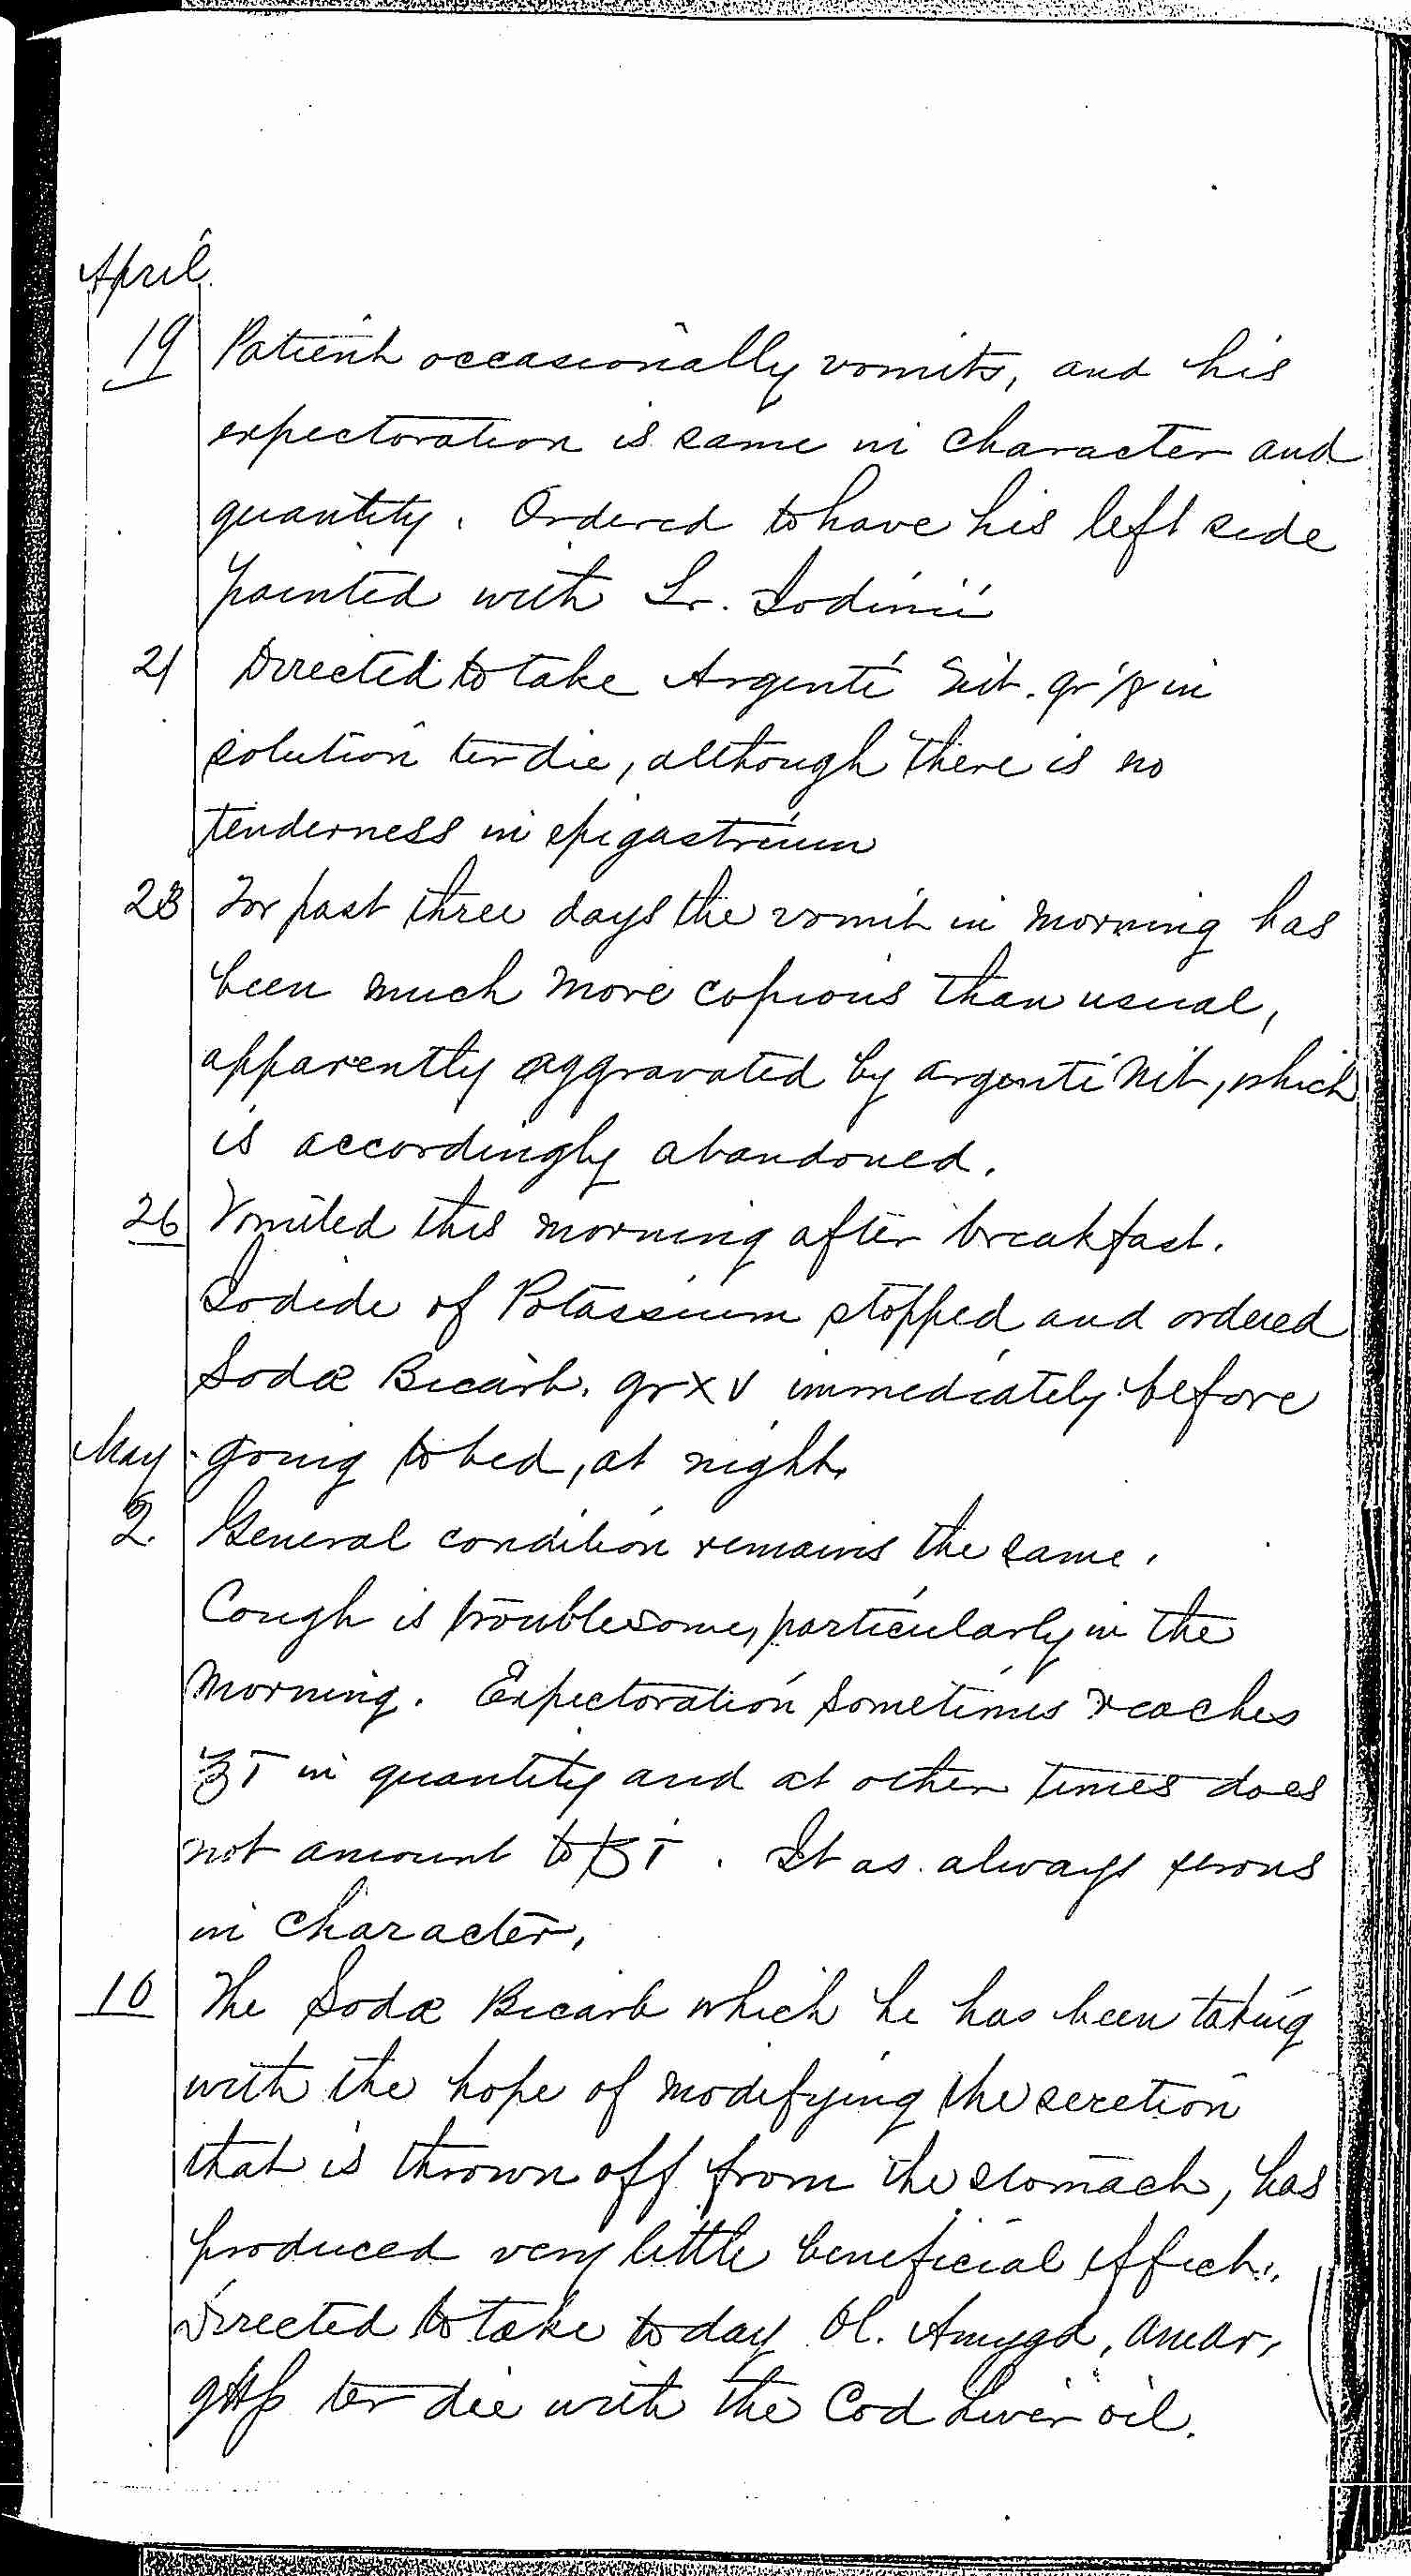 April.
19 Patient occasionally vomits, and his
expectoration is same in character and
quantity. Ordered to have his left side
painted with Tr. Iodinii
21 Directed to take Argenti Nit. gr 1/8 in
solution ter die, although there is no
tenderness in epigastrium
23 For past three days the vomit in morning has
been much more copious than usual,
apparently aggravated by argenti Nit, which
is accordingly abandoned.
26 Vomited this morning after breakfast.
Iodide of Potassium stopped and ordered
Sodæ Bicarb. gr XV immediately before
going to bed, at night.
May
2. General condition remains the same.
Cough is troublesome, particularly in the
morning. Expectoration sometimes reaches
℥ i in quantity and at other times does
not amount to ℥ i. It as always serous
in character,
10 The Sodæ Bicarb which he has been taking
with the hope of modifying the secretion
that is thrown off from the stomach, has
produced very little beneficial effect.
Directed to take today Ol. Amygd, amar,
ter die with the Cod Liver oil.